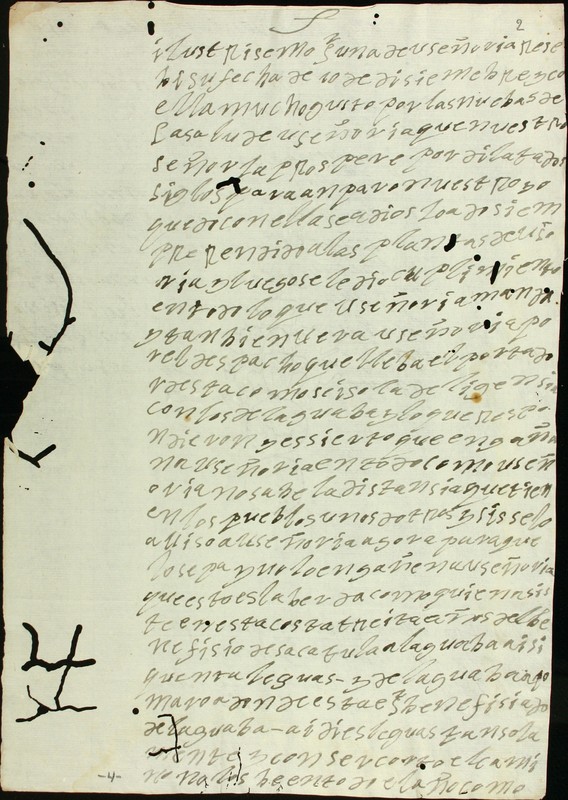 2
ilustRisemo Sr una de useñoria ReSe
bi su fecha de 10 de disiembRe y co
ella mucho gusto por las nuebas de
la salu de useñoria que nuestRo
señor la pRospere por dilatados
siglos para anparo nuestRo yo
quedo con ella sea dios loado siem
pRe Rendido a las plantas de use
ria luego se le dio cuplimiento
en todo lo que useñoria manda
y tanbien uera useñoria po
r el despacho que lleba el portado
r desta como se iso la deligensia
con los de laguaba y lo que Respo
ndieron y es sierto que engaña
n a useñoria en todo como useñ
oria no sabe la distansia que tien
en los pueblos unos de otRos y si se lo
auiso a useñoria agora para que
lo sepa y no lo engañen a useñoria
que esto es la berda como quien asis
te en esta costa tReita años del be
nefisio de sacatula a laguaba ai si
quenta leguas - y de laguaba a po
maro adonde esta el benefisiado
de laguaba - ai dies leguas tan sola
mente y con ser corto el cami
no na los be en todo el año como
-4-